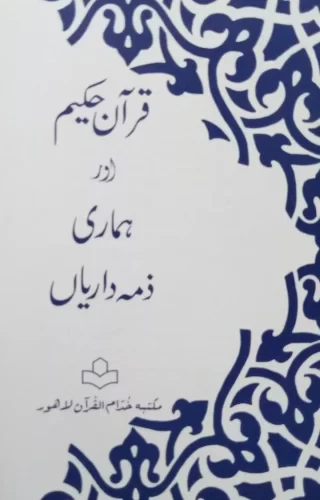 قرآن حکیم
اور
ہماری
ذمہ داریاں
مکتبہ خدّام القرآن لاھور